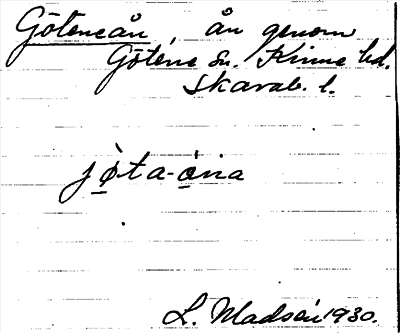 Göteneån, ån genom
Götene sn. Kinne hd.
Skarab. l.
jø̀ta-ò̱na
L. Madsén 1930.